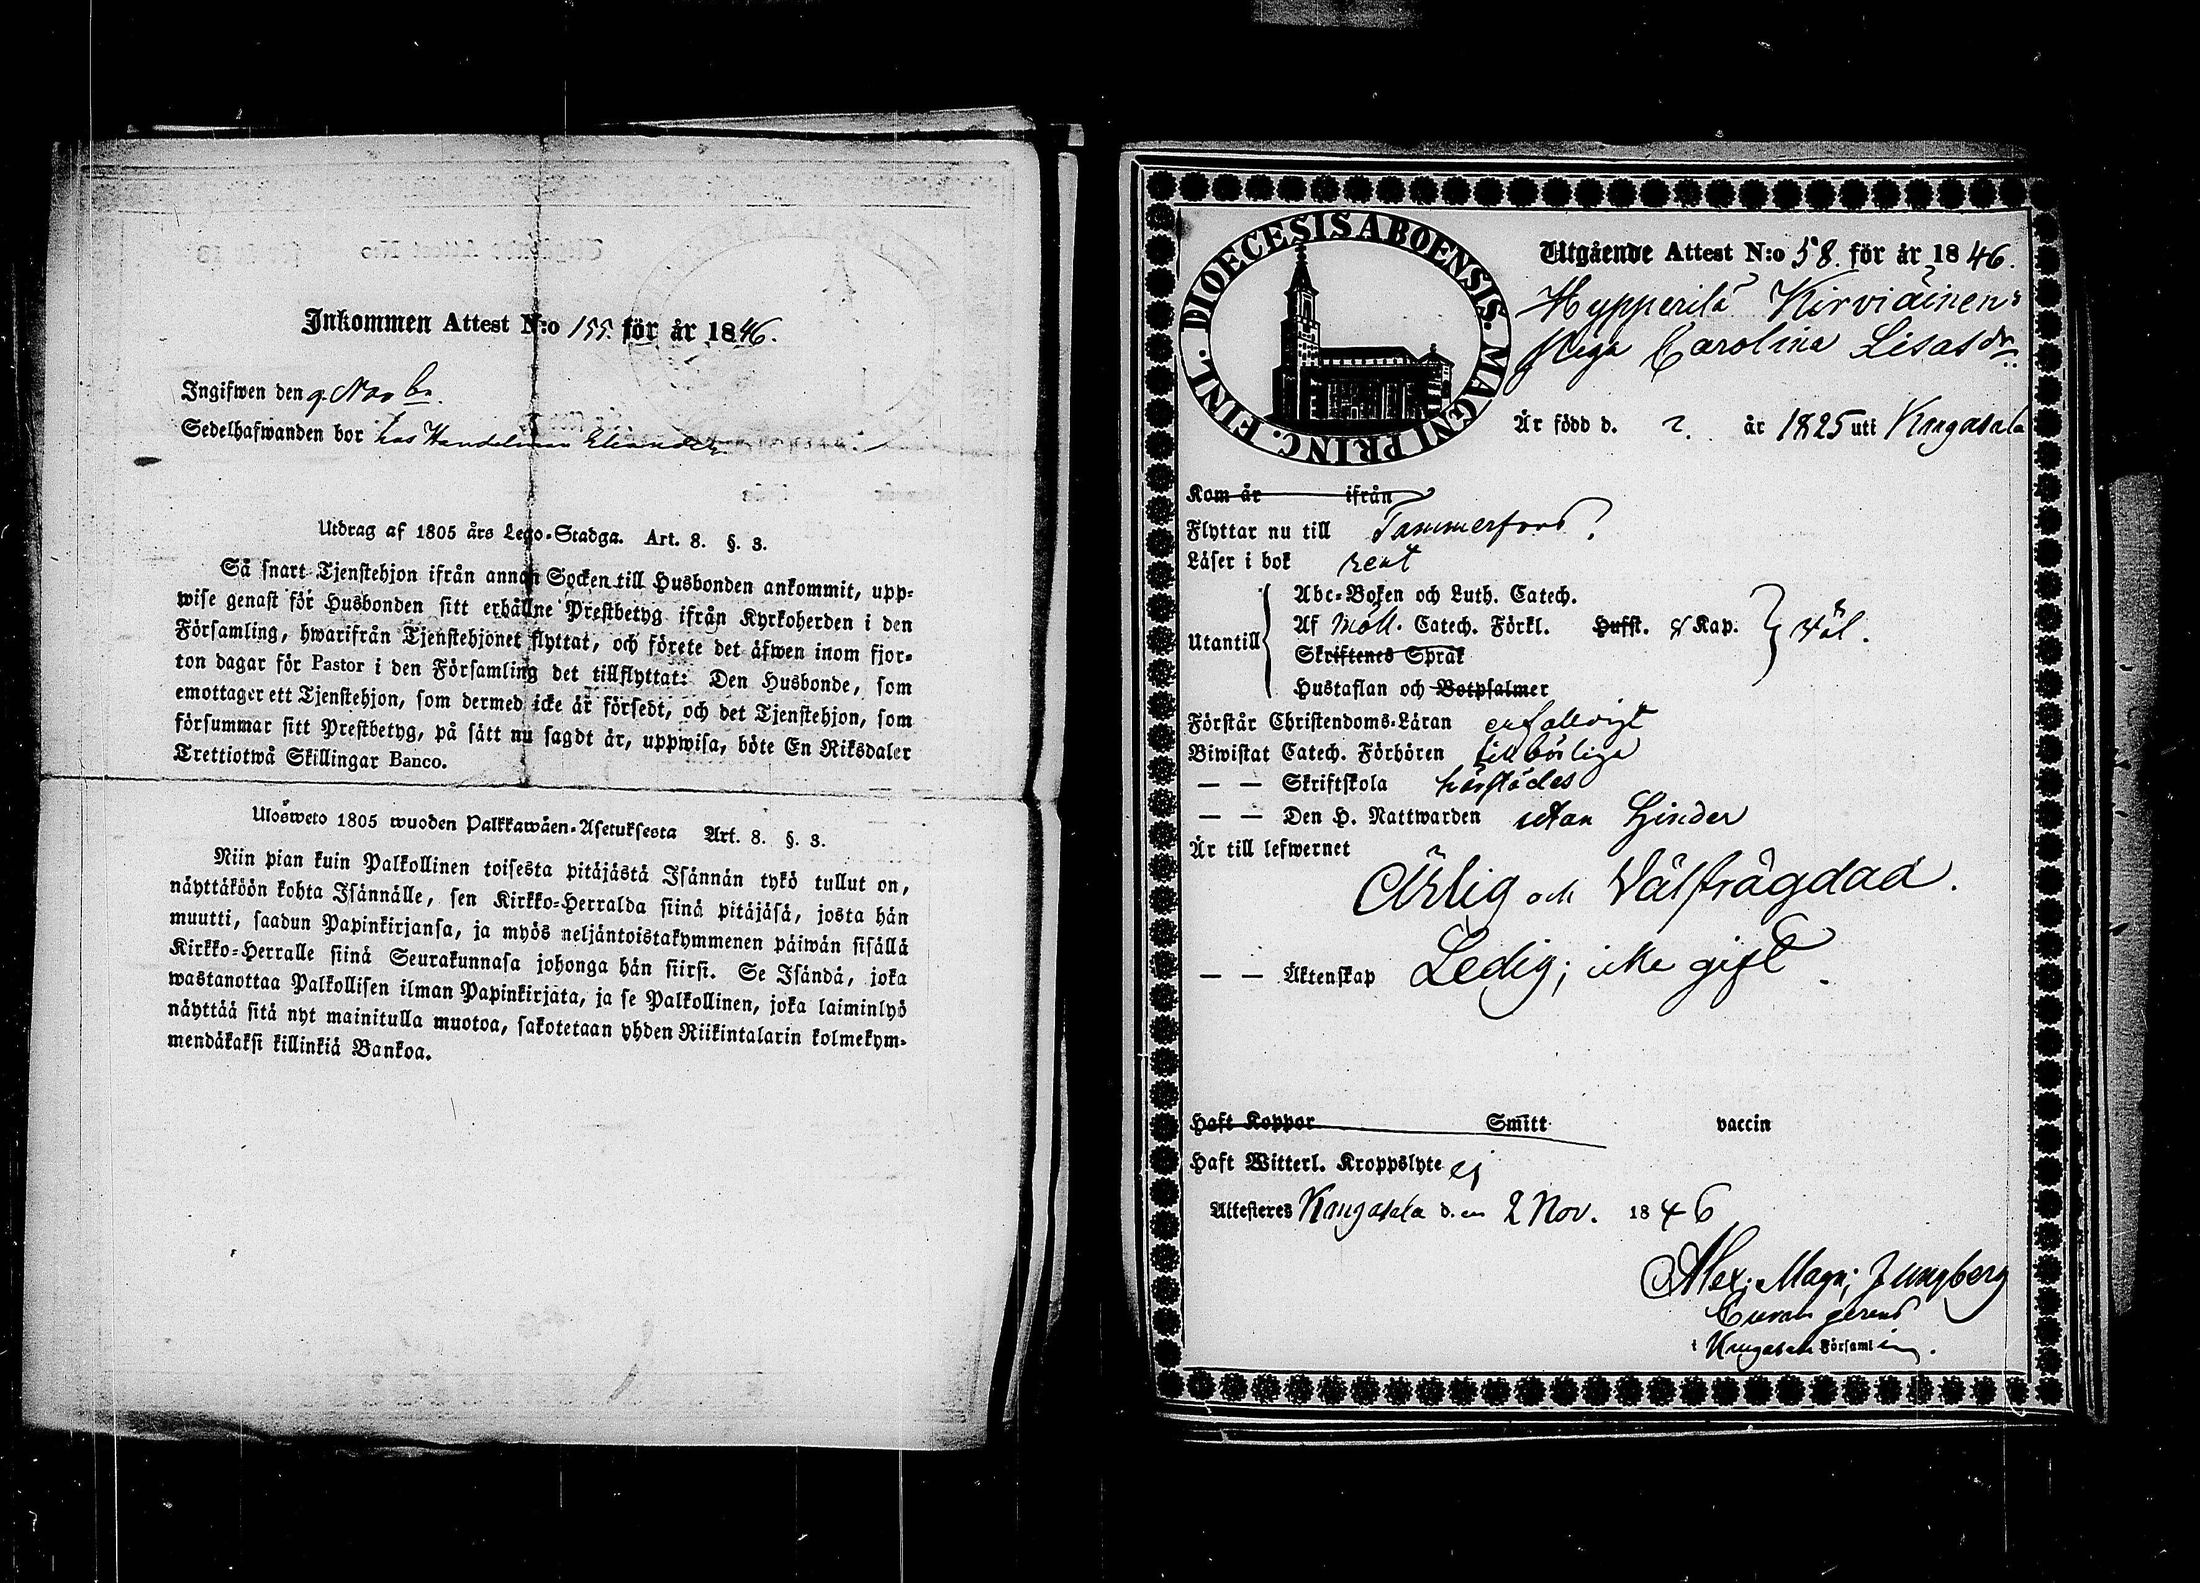 Inkommen Attest N:o 155. för år 1846.
Ingifwen den 9 Novbr.
Sedelhafwanden bor hos Handelman
Utdrag af 1805 års Lego-Stadga. Art. 8. §. 3.
Så snart Tjenstehjon ifrån annan Socken till Husbonden ankommit, upp-
wise genast för Husbonden sitt erhållne Prestbetyg ifrån Kyrkoherden i den
Församling, hwarifrån Tjenstehjonet flyttat, och förete det äfwen inom fjor-
ton dagar för Pastor i den Församling det tillflyttat: Den Husbonde, som
emottager ett Tjenstehjon, som dermed icke är försedt, och det Tjenstehjon, som
försummar sitt Prestbetyg, på sätt nu sagdt är, uppwisa, böte En Riksdaler
Trettiotwå Skillingar Banco.
Ulosweto 1805 wuoden Palkkawäen-Asetuksesta Art. 8. §. 3.
Niin pian kuin Palkollinen toisesta pitäjästä Isännän tykö tullut on,
näyttäköön kohta Isännälle, sen Kirkko-Herralda siinä pitäjäsä, josta hän
muutti, saadun Papinkirjansa, ja myös neljäntoistakymmenen päiwän sisällä
Kirkko-Herralle siinä Seurakunnasa johonga hän siirsi. Se Isändä, joka
wastanottaa Palkollisen ilman Papinkirjata, ja se Palkollinen, joka laiminlyö
näyttää sitä nyt mainitulla muotoa, sakotetaan yhden Riikintalarin kolmekym-
mendäkaksi killinkiä Bankoa.
DIOECESIS ABOENSIS. MAGNI PRINC. FINL.
Utgående Attest N:o 58. för år 1846.
Hypperilä Kirviäinens
Piga Carolina Lisasdr
Är född d. ?. år 1825 uti Kangasala
Kom år ifrån
Flyttar nu till Tammerfors.
Läser i bok rent
Utantill
Abc-Boken och Luth. Catech.
Af Möll. Catech. Förkl. Hufst. & Kap.
Skriftenes Språk
Hustaflan och Botpsalmer
väl.
Förstår Christendoms-Läran enfalldigt
Biwistat Catech. Förhören tillbörliga
— — Skriftskola härstädes
— — Den H. Nattwarden utan hinder
Är till lefwernet
Ärlig och Välfrägdad.
— — Äktenskap Ledig; icke gift.
Haft Koppor Smitt vaccin
Haft Witterl. Kroppslyte ej
Attesteres Kangasala d. en 2 Nov. 1846
Alex. Magn. Ljungberg
Curam gerens
i Kangasala Församling.